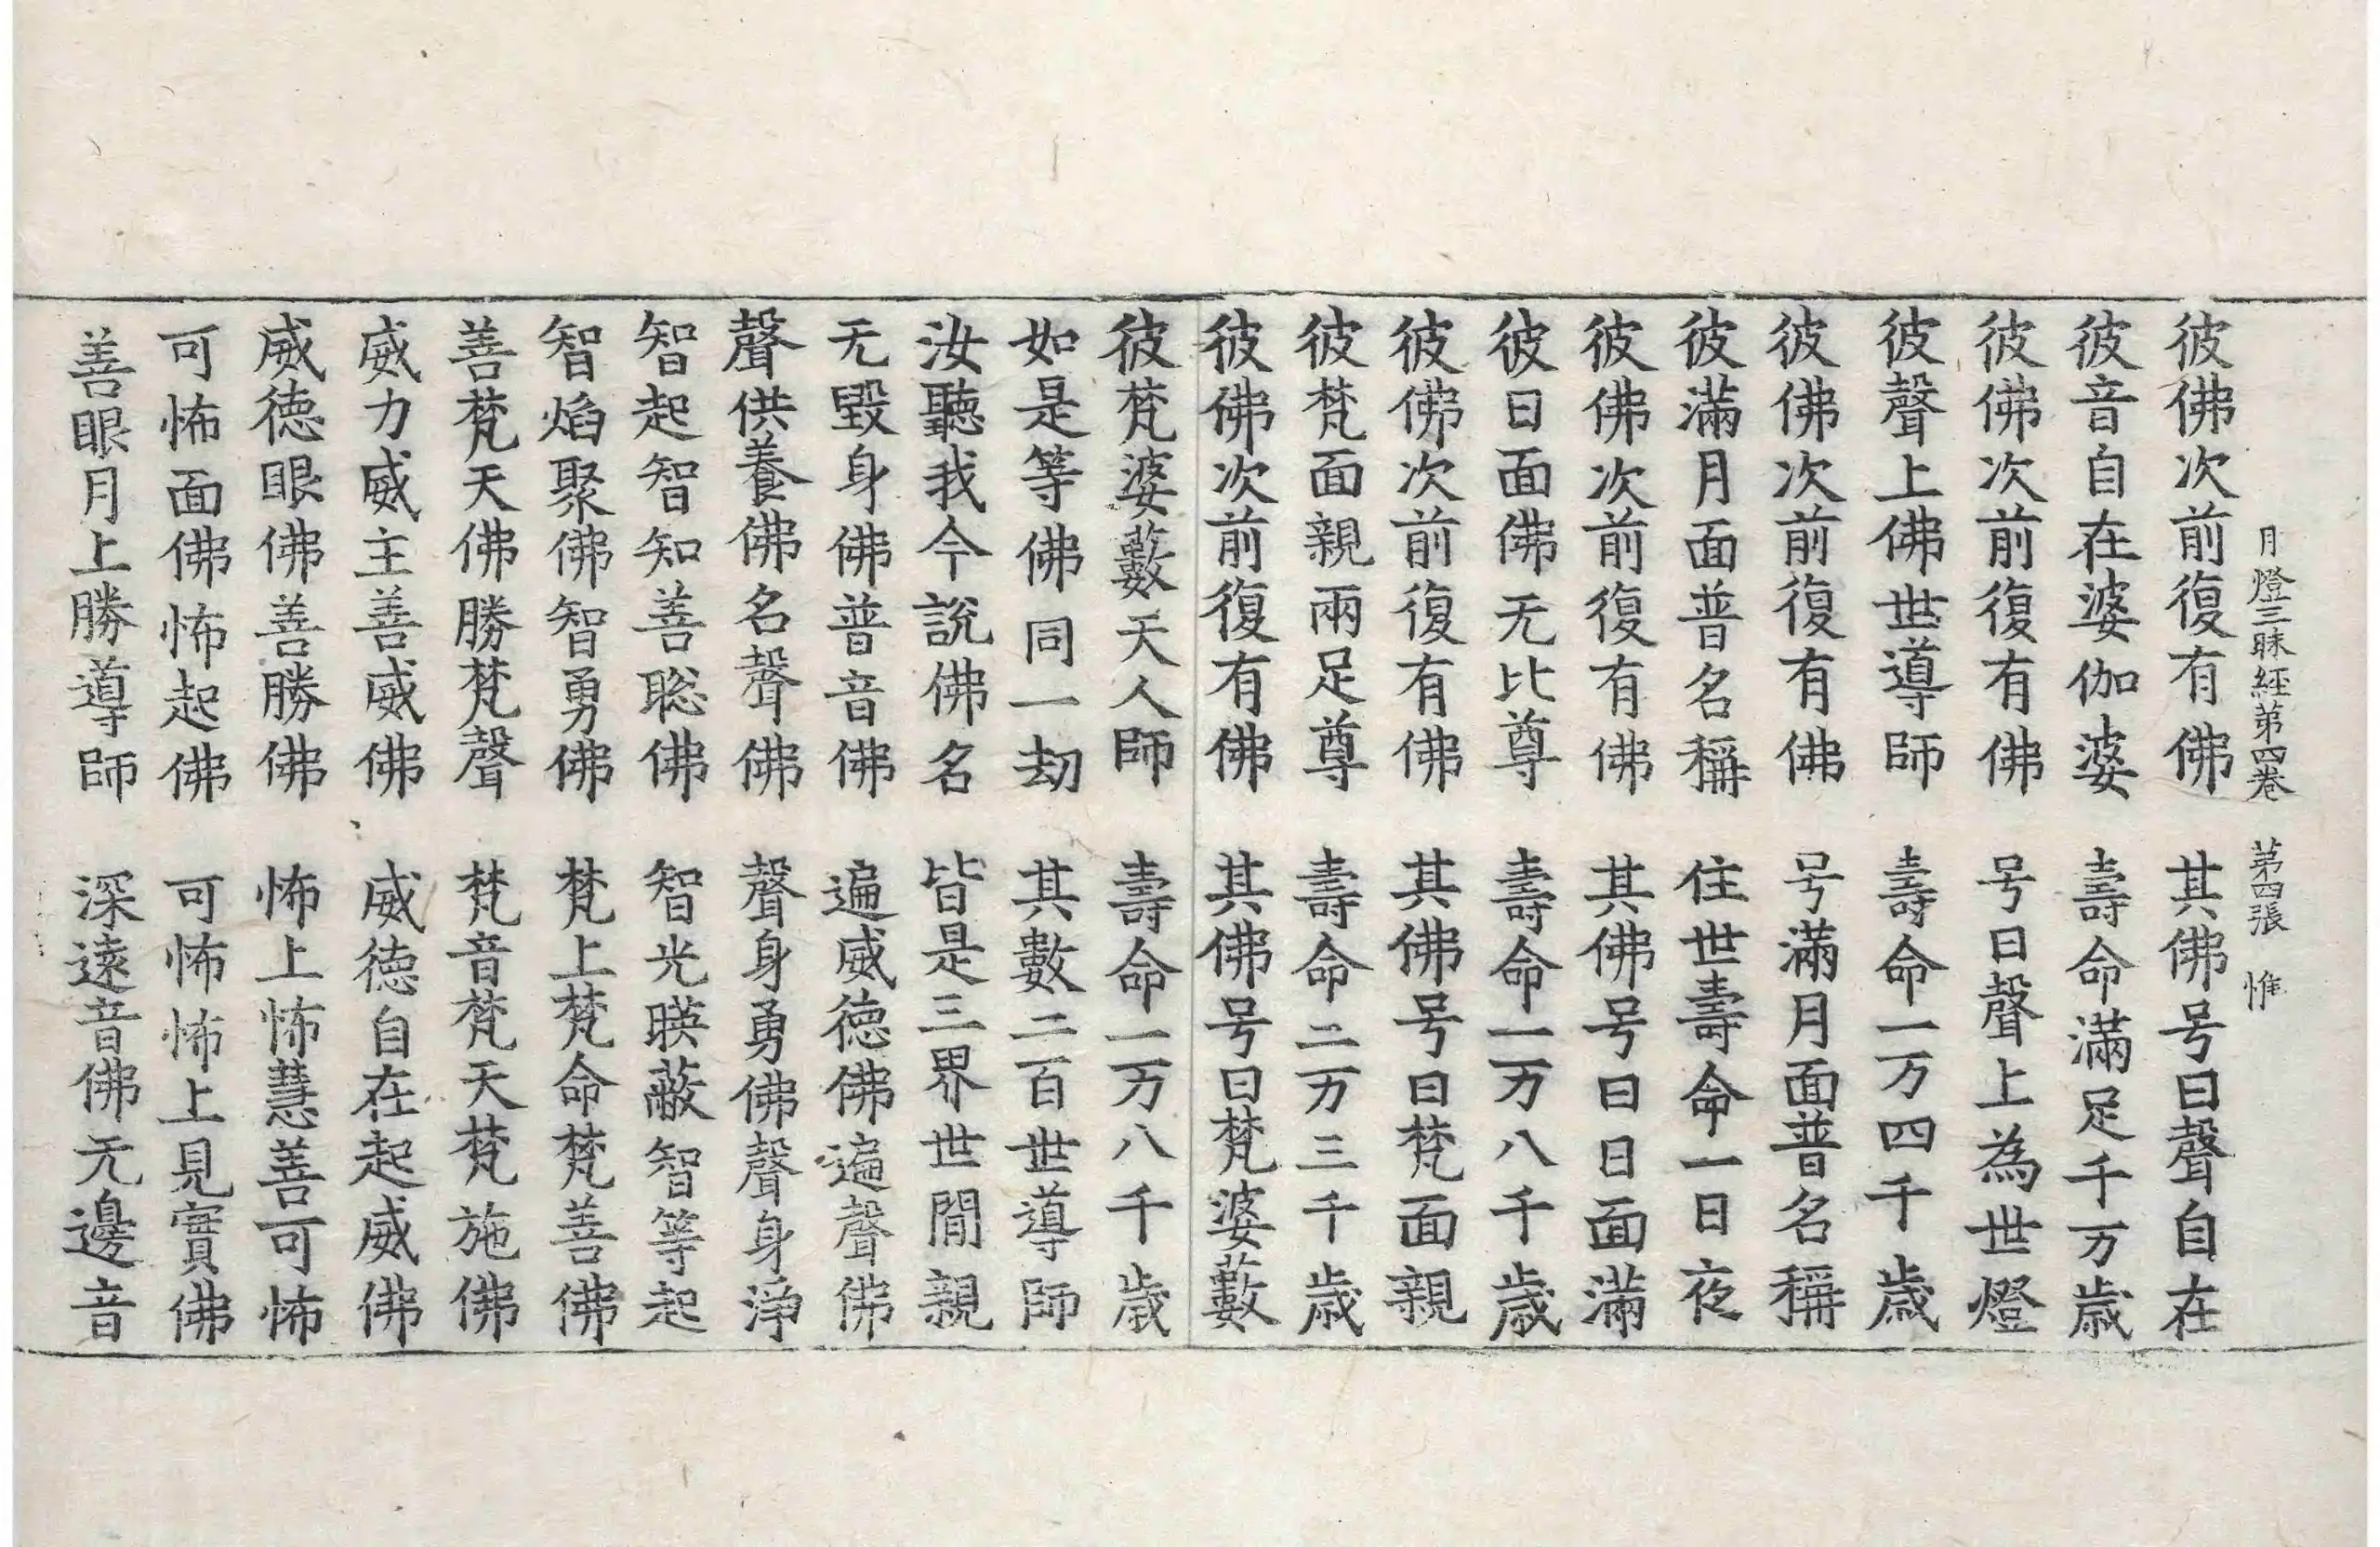 月燈三昧經第四卷　第四張　惟
彼佛次前復有佛　其佛号曰聲自在
彼音自在婆伽婆　壽命滿足千万歳
彼佛次前復有佛　号曰聲上為世燈
彼聲上佛世導師　壽命一万四千歳
彼佛次前復有佛　号滿月面普名稱
彼滿月面普名稱　住世壽命一日夜
彼佛次前復有佛　其佛号曰日面滿
彼日面佛无比尊　壽命一万八千歳
彼佛次前復有佛　其佛号曰梵面親
彼梵面親兩足尊　壽命二万三千歳
彼佛次前復有佛　其佛号曰梵婆藪
彼梵婆藪天人師　壽命一万八千歳
如是等佛同一劫　其數二百世導師
汝聽我今說佛名　皆是三界世間親
无毀身佛普音佛　遍威徳佛遍聲佛
聲供養佛名聲佛　聲身勇佛聲身淨
智起智知善聡佛　智光暎蔽智等起
智焰聚佛智勇佛　梵上梵命梵善佛
善梵天佛勝梵聲　梵音梵天梵施佛
威力威主善威佛　威徳自在起威佛
威徳眼佛善勝佛　怖上怖慧善可怖
可怖面佛怖起佛　可怖怖上見實佛
善眼月上勝導師　深遠音佛无邊音